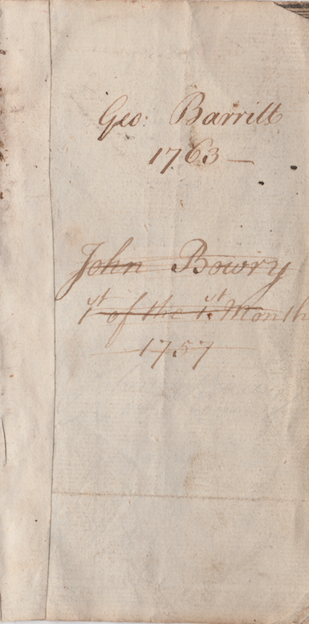 Geo: Barritt
1763—
John Bowry
1st of the 1st Month
1757